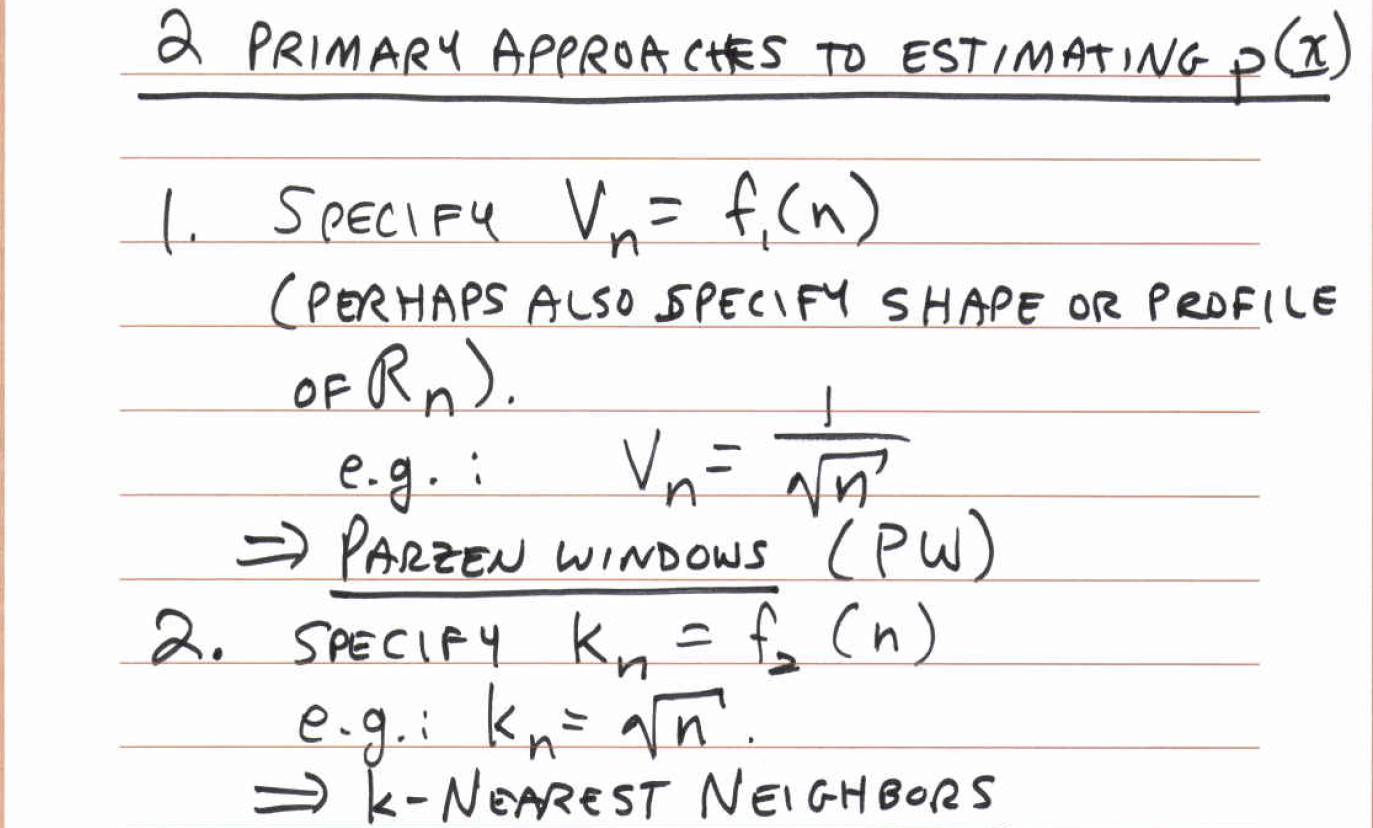 2 PRIMARY APPROACHES TO ESTIMATING p(x)
1. SPECIFY Vn = f1(n)
(PERHAPS ALSO SPECIFY SHAPE OR PROFILE
OF Rn).
e.g.: Vn = 1/√n
⇒ PARZEN WINDOWS (PW)
2. SPECIFY kn = f2(n)
e.g.: kn = √n.
⇒ k-NEAREST NEIGHBORS